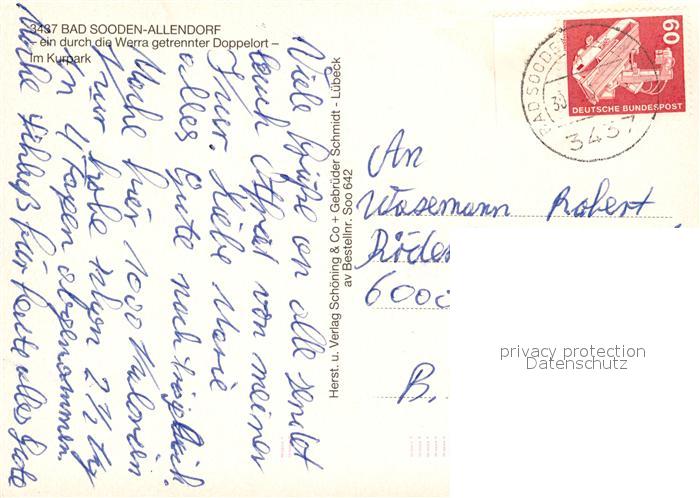 3437 BAD SOODEN-ALLENDORF
– ein durch die Werra getrennter Doppelort –
Im Kurpark
Viele Grüße an alle sendet
Euch Otfried von meiner
Kur. Liebe Marie
alles Gute nachträglich.
Mache hier 1000 Kalorien
Kur habe schon 2 ½ kg
in 4 Tagen abgenommen.
Mache Schluß für heute alles Gute
Herst. u. Verlag Schöning & Co + Gebrüder Schmidt - Lübeck
av Bestellnr. Soo 642
60
DEUTSCHE BUNDESPOST
BAD SOODEN
3437
An
Wasemann Robert
Röde
6000
B.
privacy protection
Datenschutz